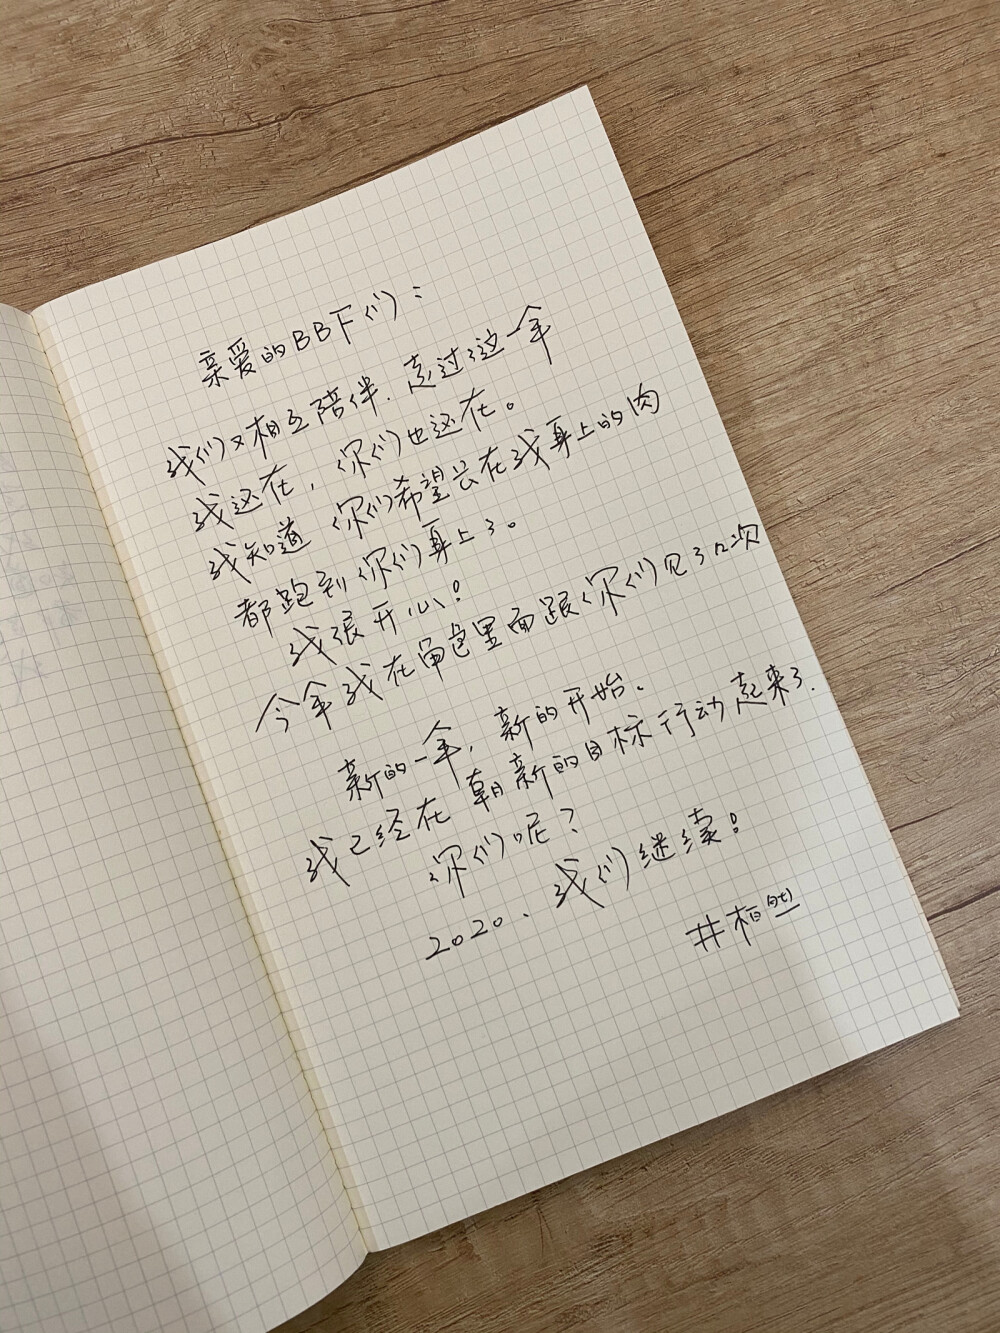 亲爱的BB下们：
我们又相互陪伴.走过了这一年
我还在，你们也还在。
我知道 你们希望长在我身上的肉
都跑到你们身上了。
我很开心！
今年我在审色里面跟你们见了几次
新的一年，新的开始。
我已经在朝新的目标行动起来了.
你们呢？
2020、我们继续！
井柏然